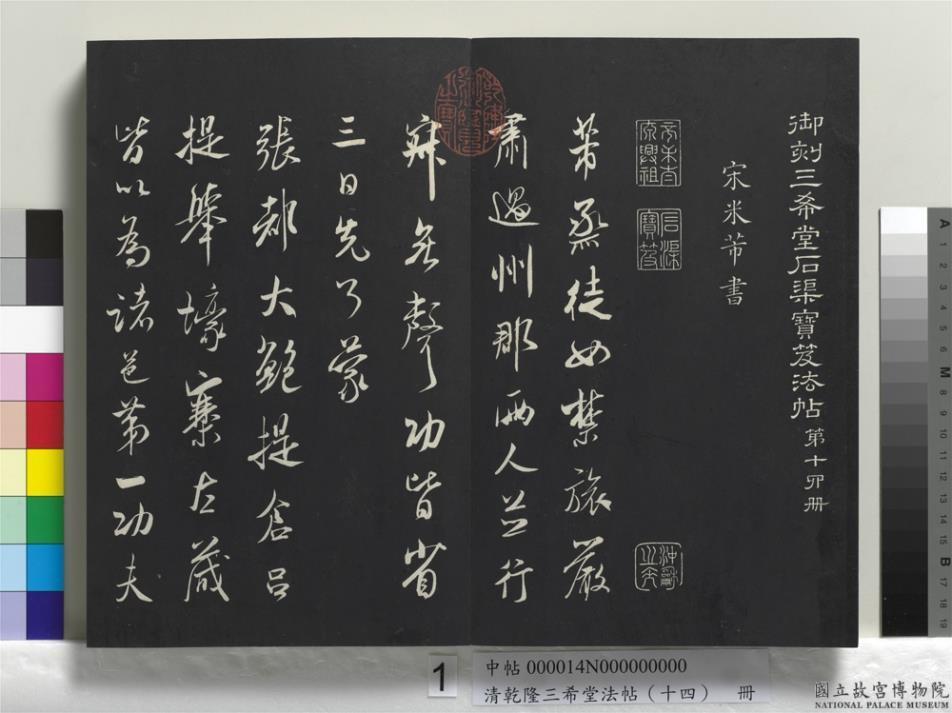 御刻三希堂石渠寶笈法帖第十四冊
宋米芾書
芾烝徒如禁旅嚴
肅過州郡兩人並行
寂無聲功皆省
三日先了蒙
張都大鮑提倉呂
提舉壕寨左藏
皆以為諸邑第一功夫
石渠
寶笈
1
中帖 000014N000000000
清乾隆三希堂法帖（十四） 冊
國立故宮博物院
NATIONAL PALACE MUSEUM
A
1
2
3
4
5
6
M
8
9
10
11
12
13
14
15
B
17
18
19